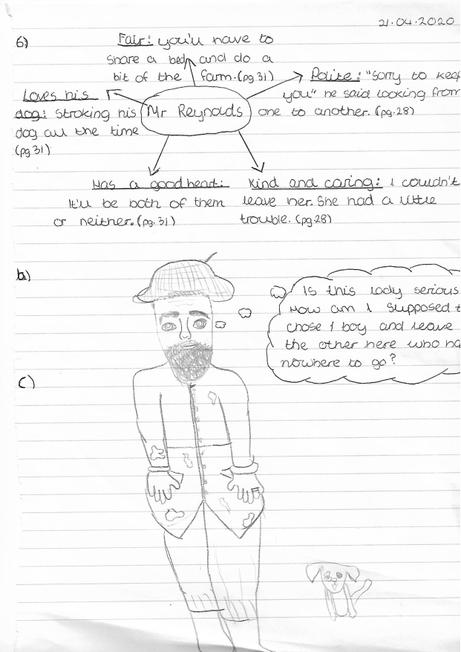 21.04.2020
6)
Fair: you'll have to
share a bed and do a
bit of the farm. (pg.31)
Polite: "Sorry to keep
you" he said looking from
one to another. (pg.28)
Loves his
dog: Stroking his
dog all the time
(pg.31)
Mr Reynolds
Has a good heart:
It'll be both of them
or neither. (pg.31)
Kind and caring: I couldn't
leave her. She had a little
trouble. (pg.28)
b)
Is this lady serious
How am I supposed t
chose 1 boy and leave
the other here who ha
nowhere to go?
c)